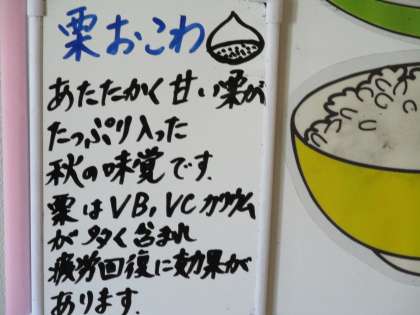 栗おこわ
あたたかく甘い栗が
たっぷり入った
秋の味覚です.
栗はVB₁VCカリウム
が多く含まれ
疲労回復に効果が
あります.